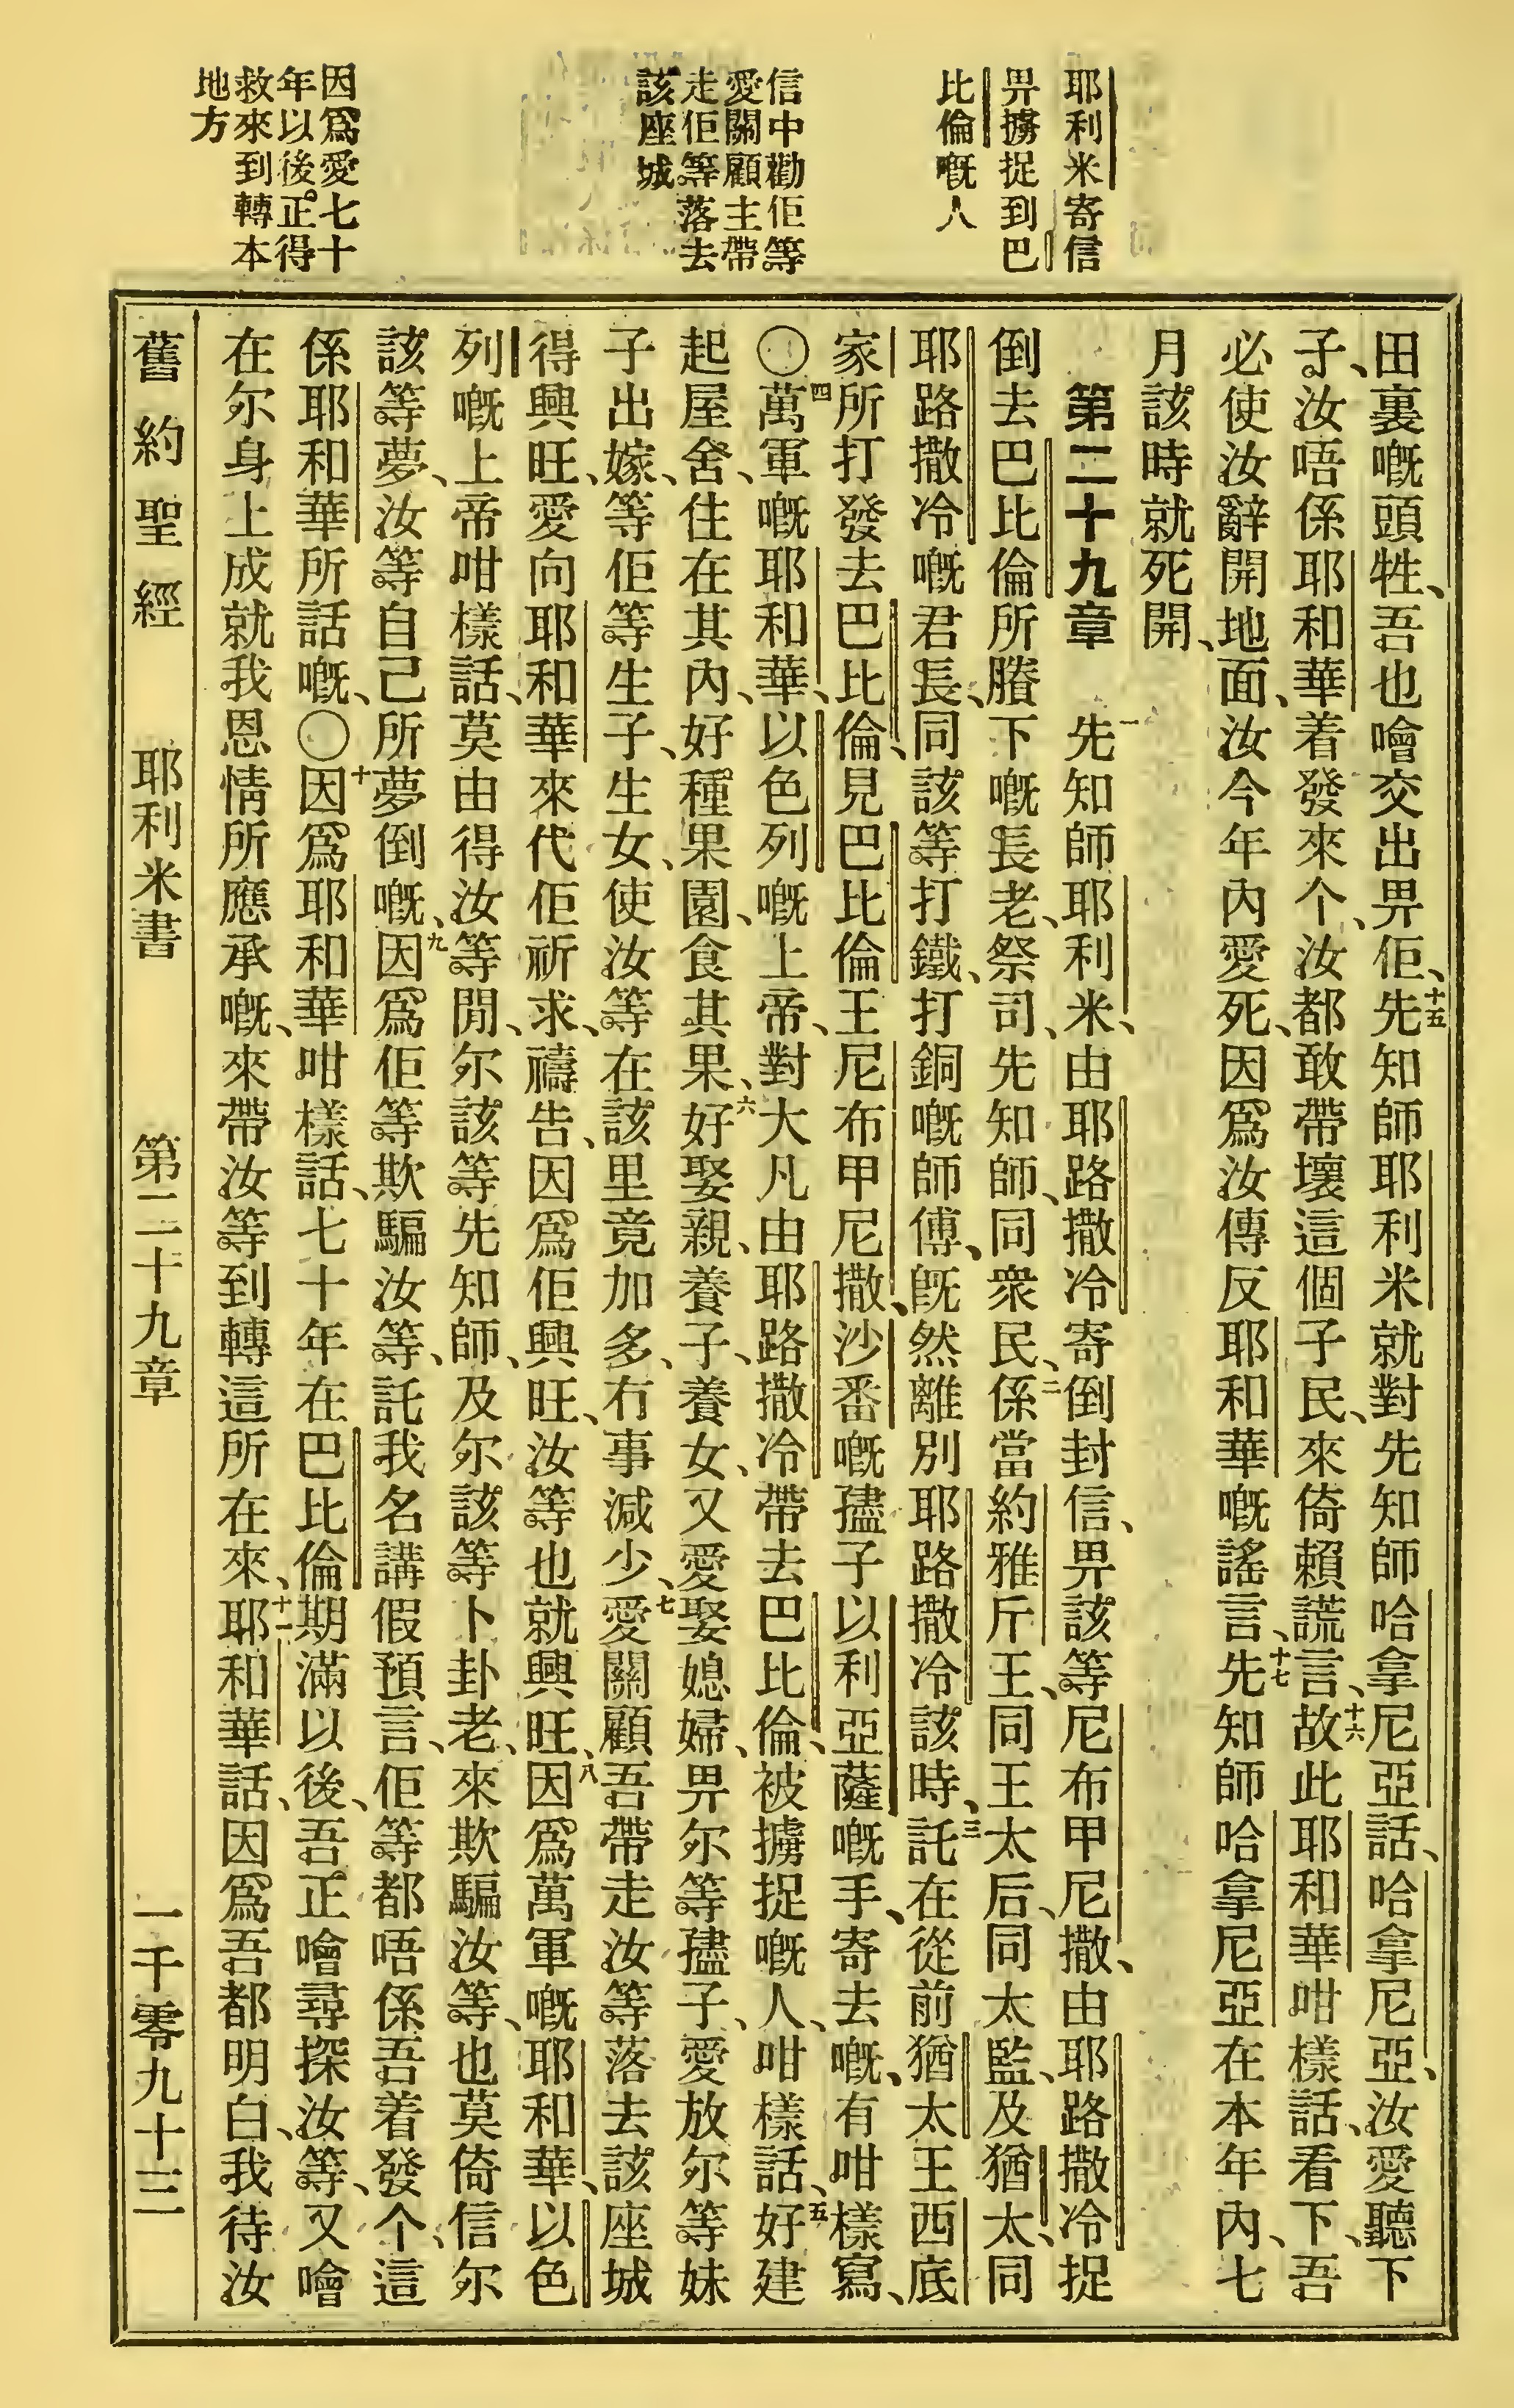 耶利米寄信
畀擄捉到巴
比倫嘅人
信中勸佢等
愛關顧主帶
走佢等落去
該座城
因爲愛七十
年以後正得
救來到轉本
地方
田裏嘅頭牲、吾也噲交出畀佢、十五先知師耶利米就對先知師哈拿尼亞話、哈拿尼亞、汝愛聽下
子、汝唔係耶和華着發來个、汝都敢帶壞這個子民、來倚賴謊言、十六故此耶和華咁樣話、看下、吾
必使汝辭開地面、汝今年內愛死、因爲汝傳反耶和華嘅謠言、十七先知師哈拿尼亞在本年內、七
月該時就死開、
第二十九章　一先知師耶利米、由耶路撒冷寄倒封信、畀該等尼布甲尼撒、由耶路撒冷捉
倒去巴比倫所賸下嘅長老、祭司、先知師、同衆民、二係當約雅斤王、同王太后、同太監、及猶太、同
耶路撒冷嘅君長、同該等打鐵、打銅嘅師傅、旣然離別耶路撒冷該時、三託在從前猶太王西底
家所打發去巴比倫、見巴比倫王尼布甲尼撒、沙番嘅孻子以利亞薩嘅手、寄去嘅、有咁樣寫、
〇四萬軍嘅耶和華、以色列嘅上帝、對大凡由耶路撒冷帶去巴比倫、被擄捉嘅人、咁樣話、五好建
起屋舍、住在其內、好種果園、食其果、六好娶親、養子、養女、又愛娶媳婦、畀尔等孻子、愛放尔等妹
子出嫁、等佢等生子、生女、使汝等在該里竟加多、冇事減少、七愛關顧吾帶走汝等落去該座城
得興旺、愛向耶和華來代佢祈求、禱告、因爲佢興旺、汝等也就興旺、八因爲萬軍嘅耶和華、以色
列嘅上帝咁樣話、莫由得汝等閒、尔該等先知師、及尔該等卜卦老、來欺騙汝等、也莫倚信尔
該等夢、汝等自己所夢倒嘅、九因爲佢等欺騙汝等、託我名講假預言、佢等都唔係吾着發个、這
係耶和華所話嘅、〇十因爲耶和華咁樣話、七十年在巴比倫期滿以後、吾正噲尋探汝等、又噲
在尔身上成就我恩情所應承嘅、來帶汝等到轉這所在來、十一耶和華話、因爲吾都明白、我待汝
舊約聖經　耶利米書　第二十九章　一千零九十三